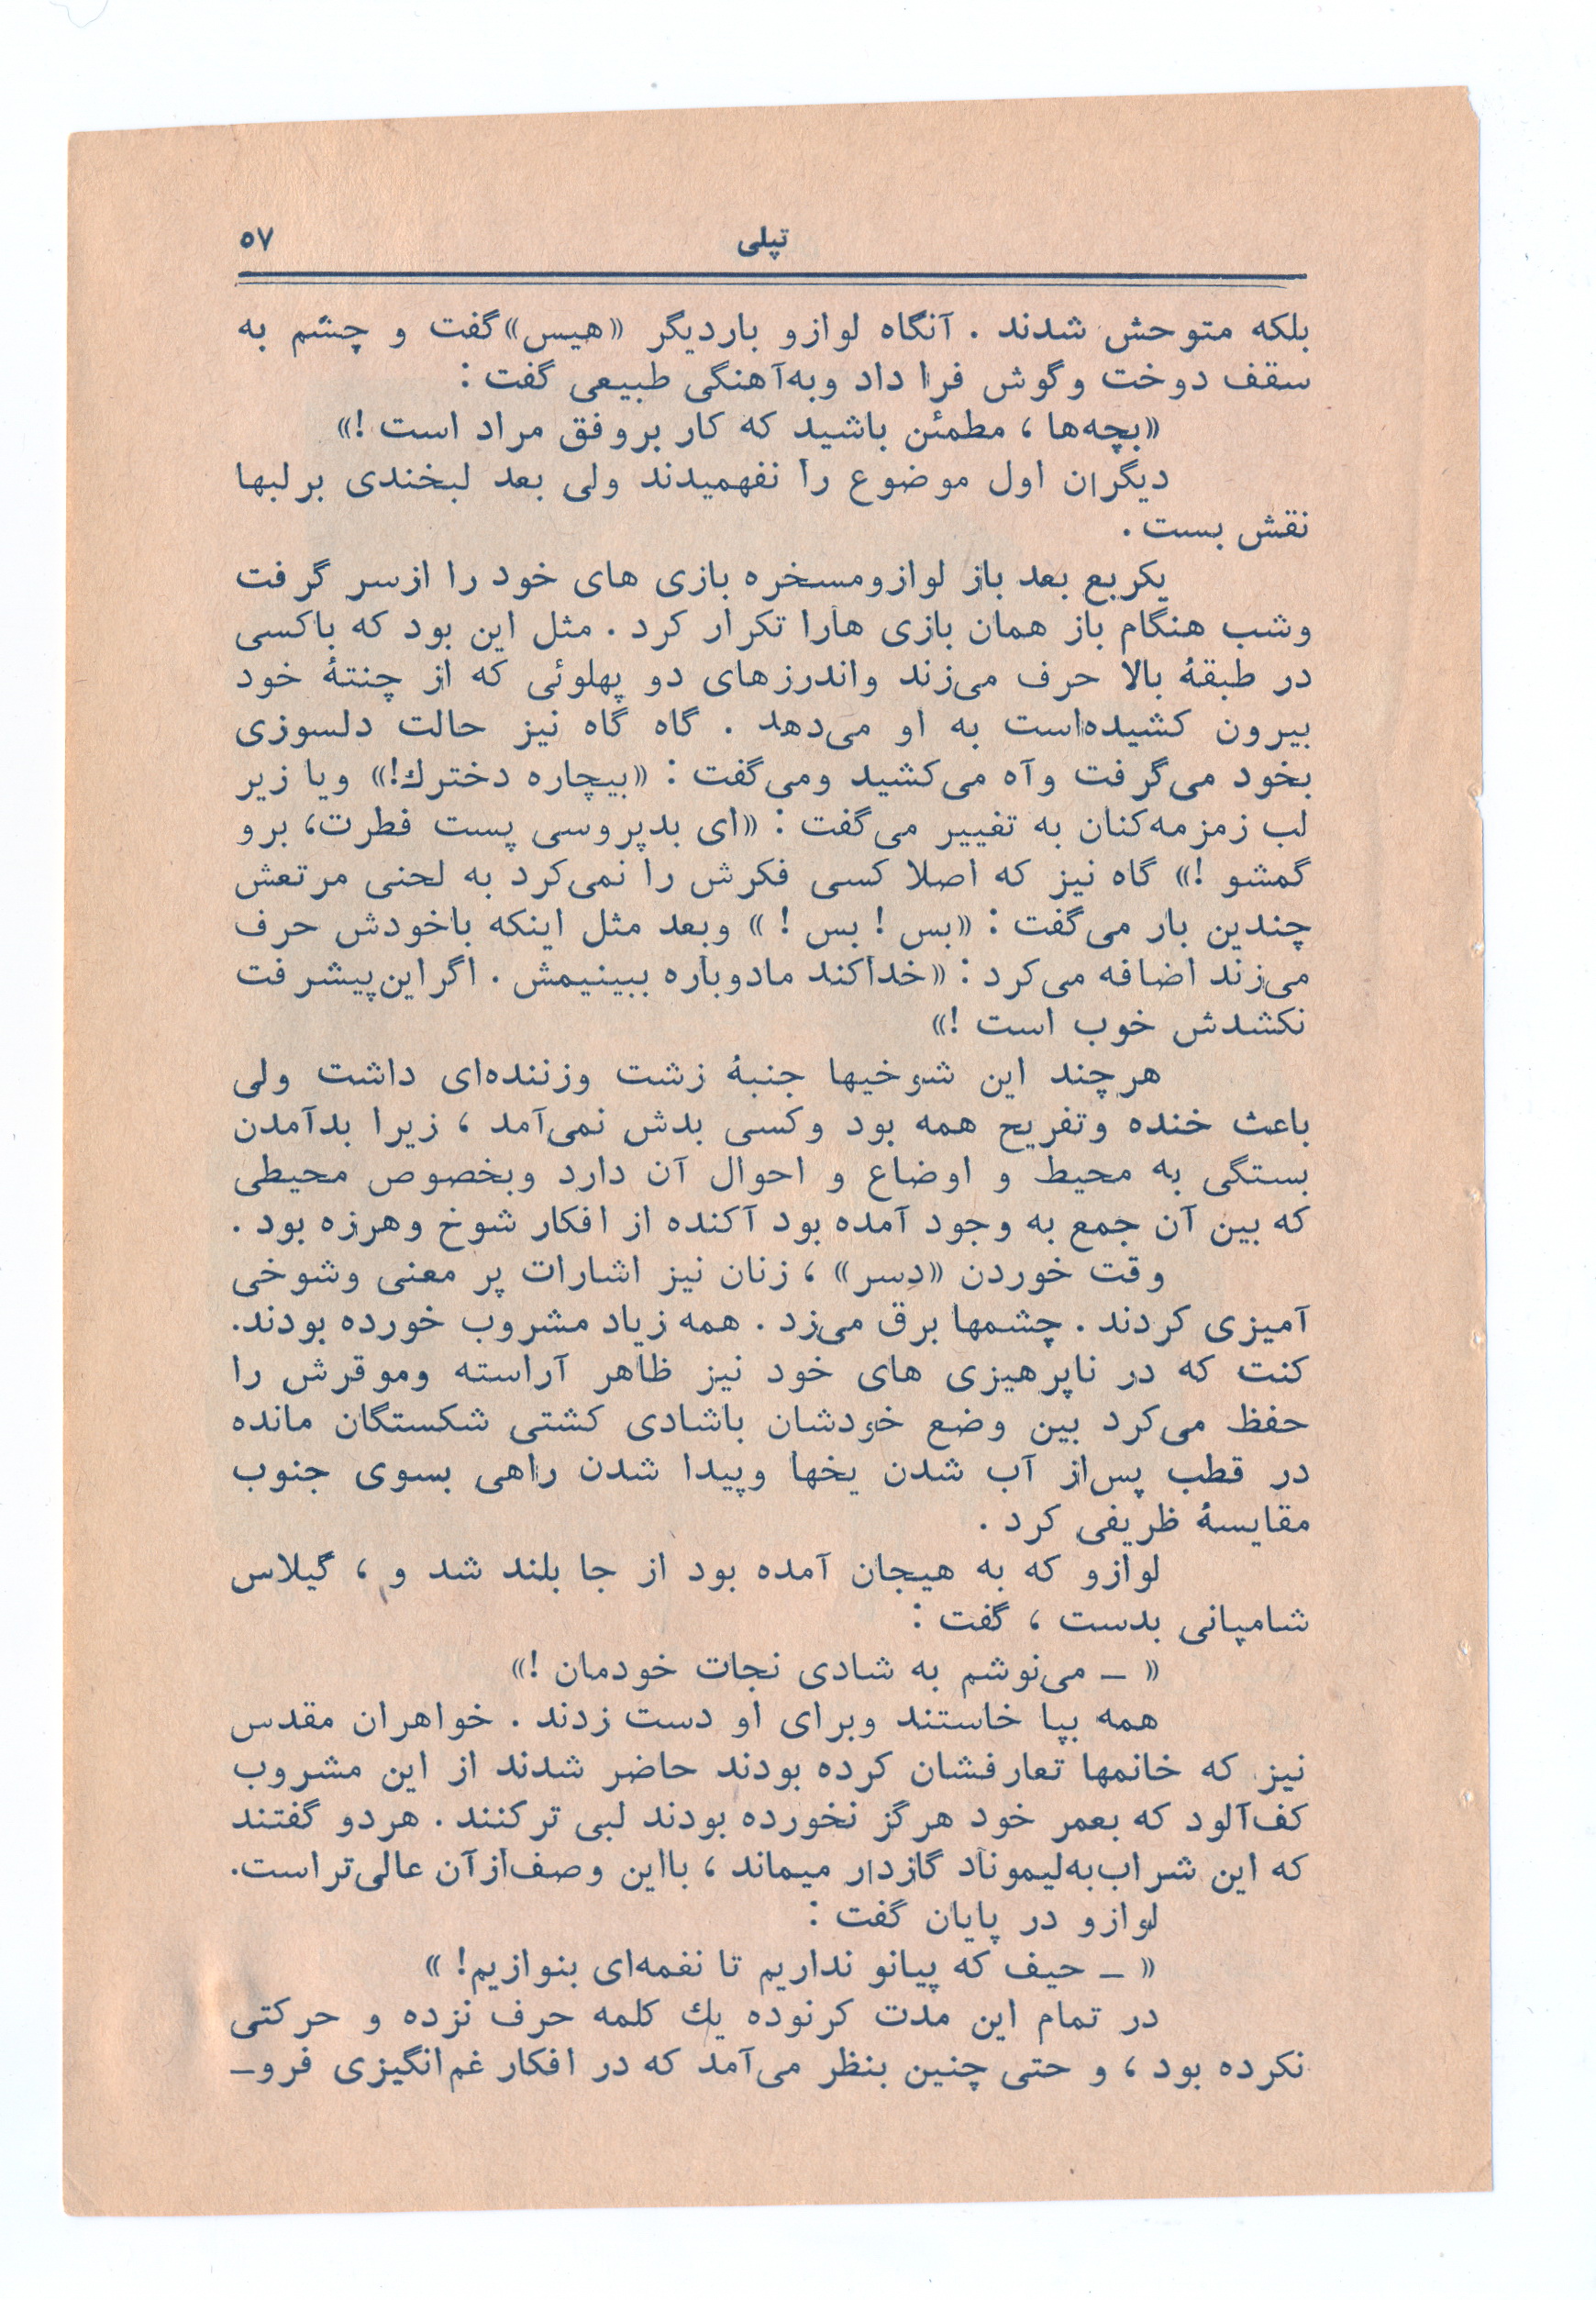 تپلی ۵۷
بلکه متوحش شدند . آنگاه لوازو باردیگر «هیس» گفت و چشم به
سقف دوخت وگوش فرا داد وبه‌آهنگی طبیعی گفت :
«بچه‌ها ، مطمئن باشید که کار بروفق مراد است !»
دیگران اول موضوع را نفهمیدند ولی بعد لبخندی برلبها
نقش بست .
یکربع بعد باز لوازومسخره بازی های خود را ازسر گرفت
وشب هنگام باز همان بازی هارا تکرار کرد . مثل این بود که باکسی
در طبقهٔ بالا حرف می‌زند واندرزهای دو پهلوئی که از چنتهٔ خود
بیرون کشیده‌است به او می‌دهد . گاه گاه نیز حالت دلسوزی
بخود می‌گرفت وآه می‌کشید ومی‌گفت : «بیچاره دخترك!» ویا زیر
لب زمزمه‌کنان به تغییر می‌گفت : «ای بدپروسی پست فطرت، برو
گمشو !» گاه نیز که اصلا کسی فکرش را نمی‌کرد به لحنی مرتعش
چندین بار می‌گفت : «بس ! بس ! » وبعد مثل اینکه باخودش حرف
می‌زند اضافه می‌کرد : «خداکند مادوباره ببینیمش . اگر این‌پیشرفت
نکشدش خوب است !»
هرچند این شوخیها جنبهٔ زشت وزننده‌ای داشت ولی
باعث خنده وتفریح همه بود وکسی بدش نمی‌آمد ، زیرا بدآمدن
بستگی به محیط و اوضاع و احوال آن دارد وبخصوص محیطی
که بین آن جمع به وجود آمده بود آکنده از افکار شوخ وهرزه بود .
وقت خوردن «دِسر» ، زنان نیز اشارات پر معنی وشوخی
آمیزی کردند . چشمها برق می‌زد . همه زیاد مشروب خورده بودند.
کنت که در ناپرهیزی های خود نیز ظاهر آراسته وموقرش را
حفظ می‌کرد بین وضع خودشان باشادی کشتی شکستگان مانده
در قطب پس‌از آب شدن یخها وپیدا شدن راهی بسوی جنوب
مقایسهٔ ظریفی کرد .
لوازو که به هیجان آمده بود از جا بلند شد و ، گیلاس
شامپانی بدست ، گفت :
« ــ می‌نوشم به شادی نجات خودمان !»
همه بپا خاستند وبرای او دست زدند . خواهران مقدس
نیز که خانمها تعارفشان کرده بودند حاضر شدند از این مشروب
کف‌آلود که بعمر خود هرگز نخورده بودند لبی ترکنند . هردو گفتند
که این شراب‌به‌لیموناد گازدار میماند ، بااین وصف‌ازآن عالی‌تراست.
لوازو در پایان گفت :
« ــ حیف که پیانو نداریم تا نغمه‌ای بنوازیم! »
در تمام این مدت کرنوده یك کلمه حرف نزده و حرکتی
نکرده بود ، و حتی چنین بنظر می‌آمد که در افکار غم‌انگیزی فرو‌ــ